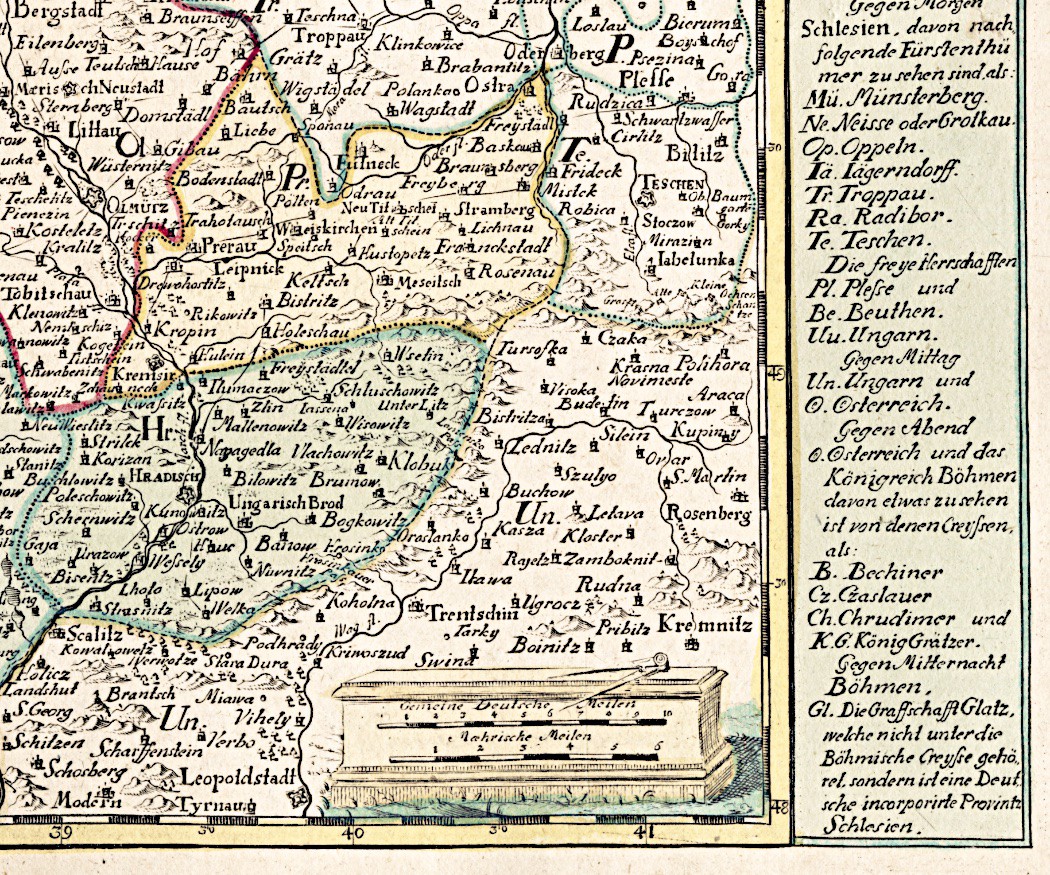 Bergstadt
Braunseiffen
Tr.
Teschna
Troppau
Oppa fl.
Klinkowice
Loslau
Bierum
Boyschof
Eilenberg
Hof
Grätz
Brabantitz
Oderberg
P.
Psezina
Plesse
Ausse
Teutsch Hause
Bährn
Wigstädel
Polankao
Ostra
Rudzica
Mæris
Neustadt
Sternberg
Domstadl
Bautsch
Wagstadt
Schwartzwasser
Littau
Liebe
Sponau
Freystadl
Cirlitz
Ol.
Gibau
Baskau
Te.
Bilitz
Wüsternitz
Bodenstadt
Pr.
Fulneck
Braunsberg
Frideck
Teschetitz
Olmürz
Odrau
Freyberg
Mistek
Teschen
Pienezin
Pölten
Neu Titschei
Stramberg
Robica
Kosteletz
Trahotausch
Weiskirchen
Lichnau
Stoczow
Kralitz
Prerau
Speitsch
Hustopetz
Franckstadt
Mirazian
Leipnick
Keltsch
Meseitsch
Rosenau
Iabelunka
Tobitschau
Drewohostitz
Bistritz
Klenowitz
Rikowitz
Kropin
Holeschau
Tursoska
Czaka
Kremsir
Kulein
Freystädtel
Wsetin
Krasna
Polihora
Novimeste
Tlumaczow
Schluschowitz
Visoka
Araca
Kwasitz
Zlin
Iassena
Unter Litz
Budetin
Turczow
Neu Wieslitz
Mallenowitz
Wisowitz
Bistritza
Silein
Kupiny
Strilck
Hr.
Napagedla
Vlachowitz
Klobuk
Zednitz
Orlar
Korizan
S. Martin
Buchlowitz
Hradisch
Bilowitz
Brumow
Szulyo
Poleschowitz
Kunowitz
Ungarisch Brod
Buchow
Schernwitz
Ostrow
Bogkowitz
Un.
Letava
Rosenberg
Gaja
Hluc
Banow
Hrosinko
Oroslanko
Kasza
Kloster
Urazow
Wessely
Nivnitz
Rajetz
Zamboknit
Bisentz
Ilawa
Lhota
Lipow
Rudna
Strasnitz
Welka
Koholna
Trentschin
Ugrocz
Scalitz
Wag fl.
Tarky
Pribitz
Kremnitz
Kowalowetz
Podhrady
Kriwoszud
Swina
Boinitz
Holicz
Werwotze
Stara Dura
Landshut
Brantsch
Miawa
S. Georg
Un.
Vihely
Schitzen
Scharffenstein
Verbo
Schosberg
Leopoldstadt
Modern
Tyrnau
Gemeine Deutsche Meilen
1 2 3 4 5 6 7 8 9 10
Mæhrische Meilen
1 2 3 4 5 6
39 30 40 30 41
30
49
30
48
Gegen Morgen
Schlesien, davon nach
folgende Fürstenthü
mer zu sehen sind, als:
Mü. Münsterberg.
Ne. Neisse oder Grotkau.
Op. Oppeln.
Iä. Iägerndorff.
Tr. Troppau.
Ra. Radibor.
Te. Teschen.
Die freye Herrschafften
Pl. Plesse und
Be. Beuthen.
Uu. Ungarn.
Gegen Mittag
Un. Ungarn und
O. Osterreich.
Gegen Abend
O. Osterreich und das
Königreich Böhmen
davon etwas zu sehen
ist von denen Creyssen,
als:
B. Bechiner
Cz. Czaslauer
Ch. Chrudimer und
K.G. König Grätzer.
Gegen Mitternacht
Böhmen.
Gl. Die Graffschafft Glatz,
welche nicht unter die
Böhmische Creysse gehö,
ret, sondern ist eine Deut
sche incorporirte Provintz
Schlesien.